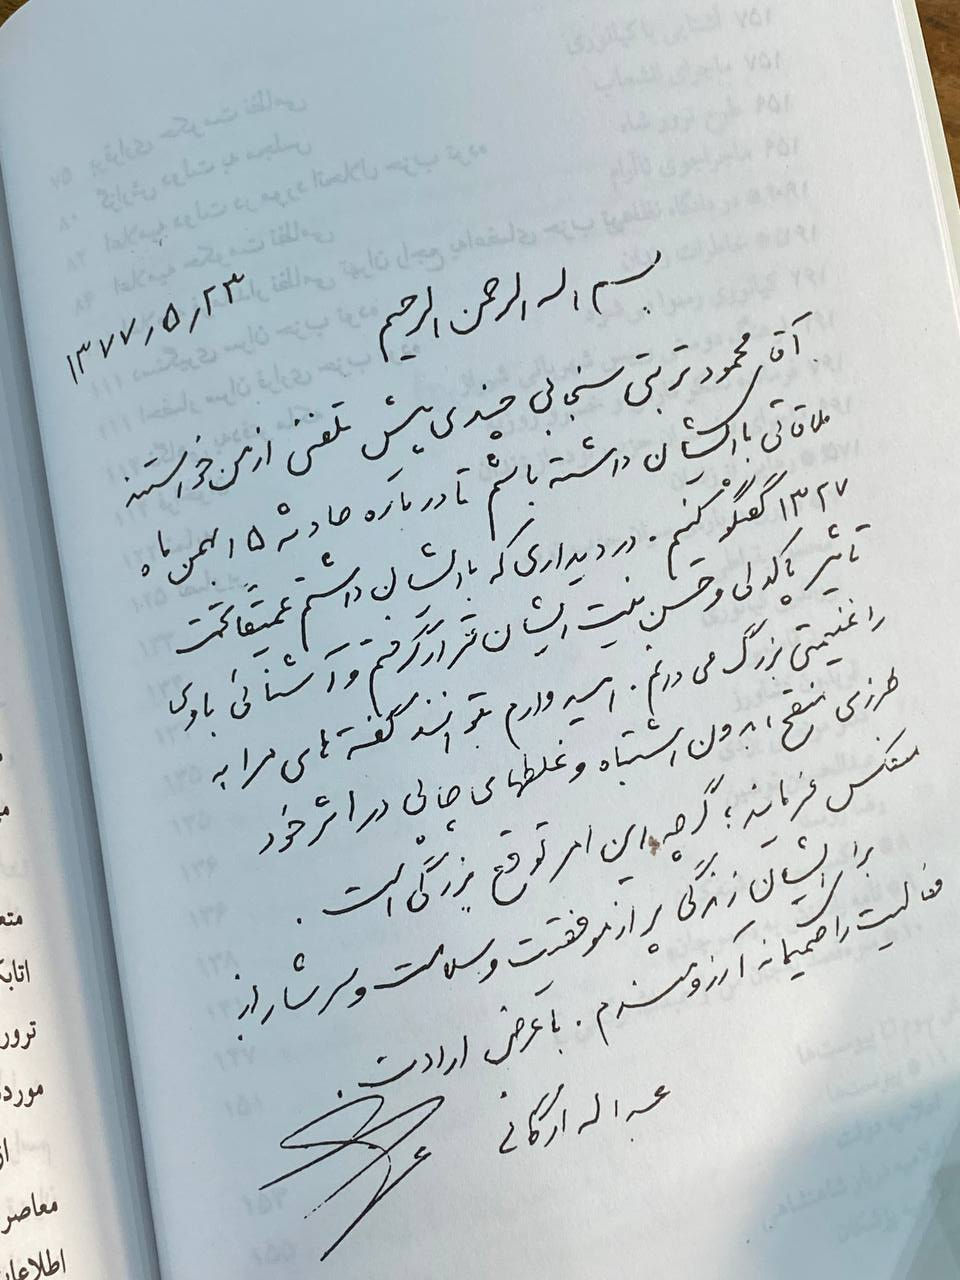 بسم اله الرحمن الرحیم
۱۳۷۷ر۵ر۲۳
آقای محمود تربتی سنجابی چندی پیش تلفنی از من خواستند
ملاقاتی با ایشان داشته باشم تا درباره حادثه ۱۵ بهمن ماه
۱۳۲۷ گفتگو کنیم. در دیداری که با ایشان داشتم عمیقاً تحت
تاثیر پاکدلی و حسن نیت ایشان قرار گرفتم و آشنائی با وی
را غنیمتی بزرگ می دانم. امید وارم بتوانند گفته های مرا به
طرزی منقح، بدون اشتباه و غلطهای چاپی در اثر خود
منعکس فرمایند؛ گرچه این امر توقع بزرگی است.
برای ایشان زندگی پر از موفقیت و سلامت و سرشار از
فعالیت را صمیمانه آرزومندم. با عرض ارادت.
عبداله ارگانی
متع
اتابک
ترور
مورد
از
معاصر
اطلاعات